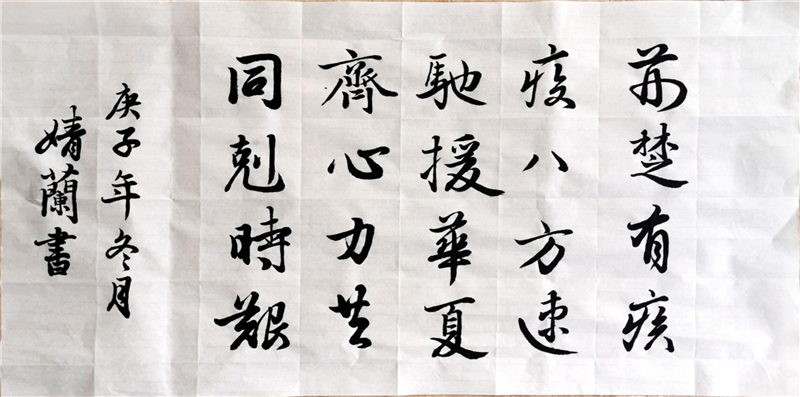 荊楚有疾
疫八方速
馳援華夏
齊心力共
同剋時艱
庚子年冬月
婧蘭書